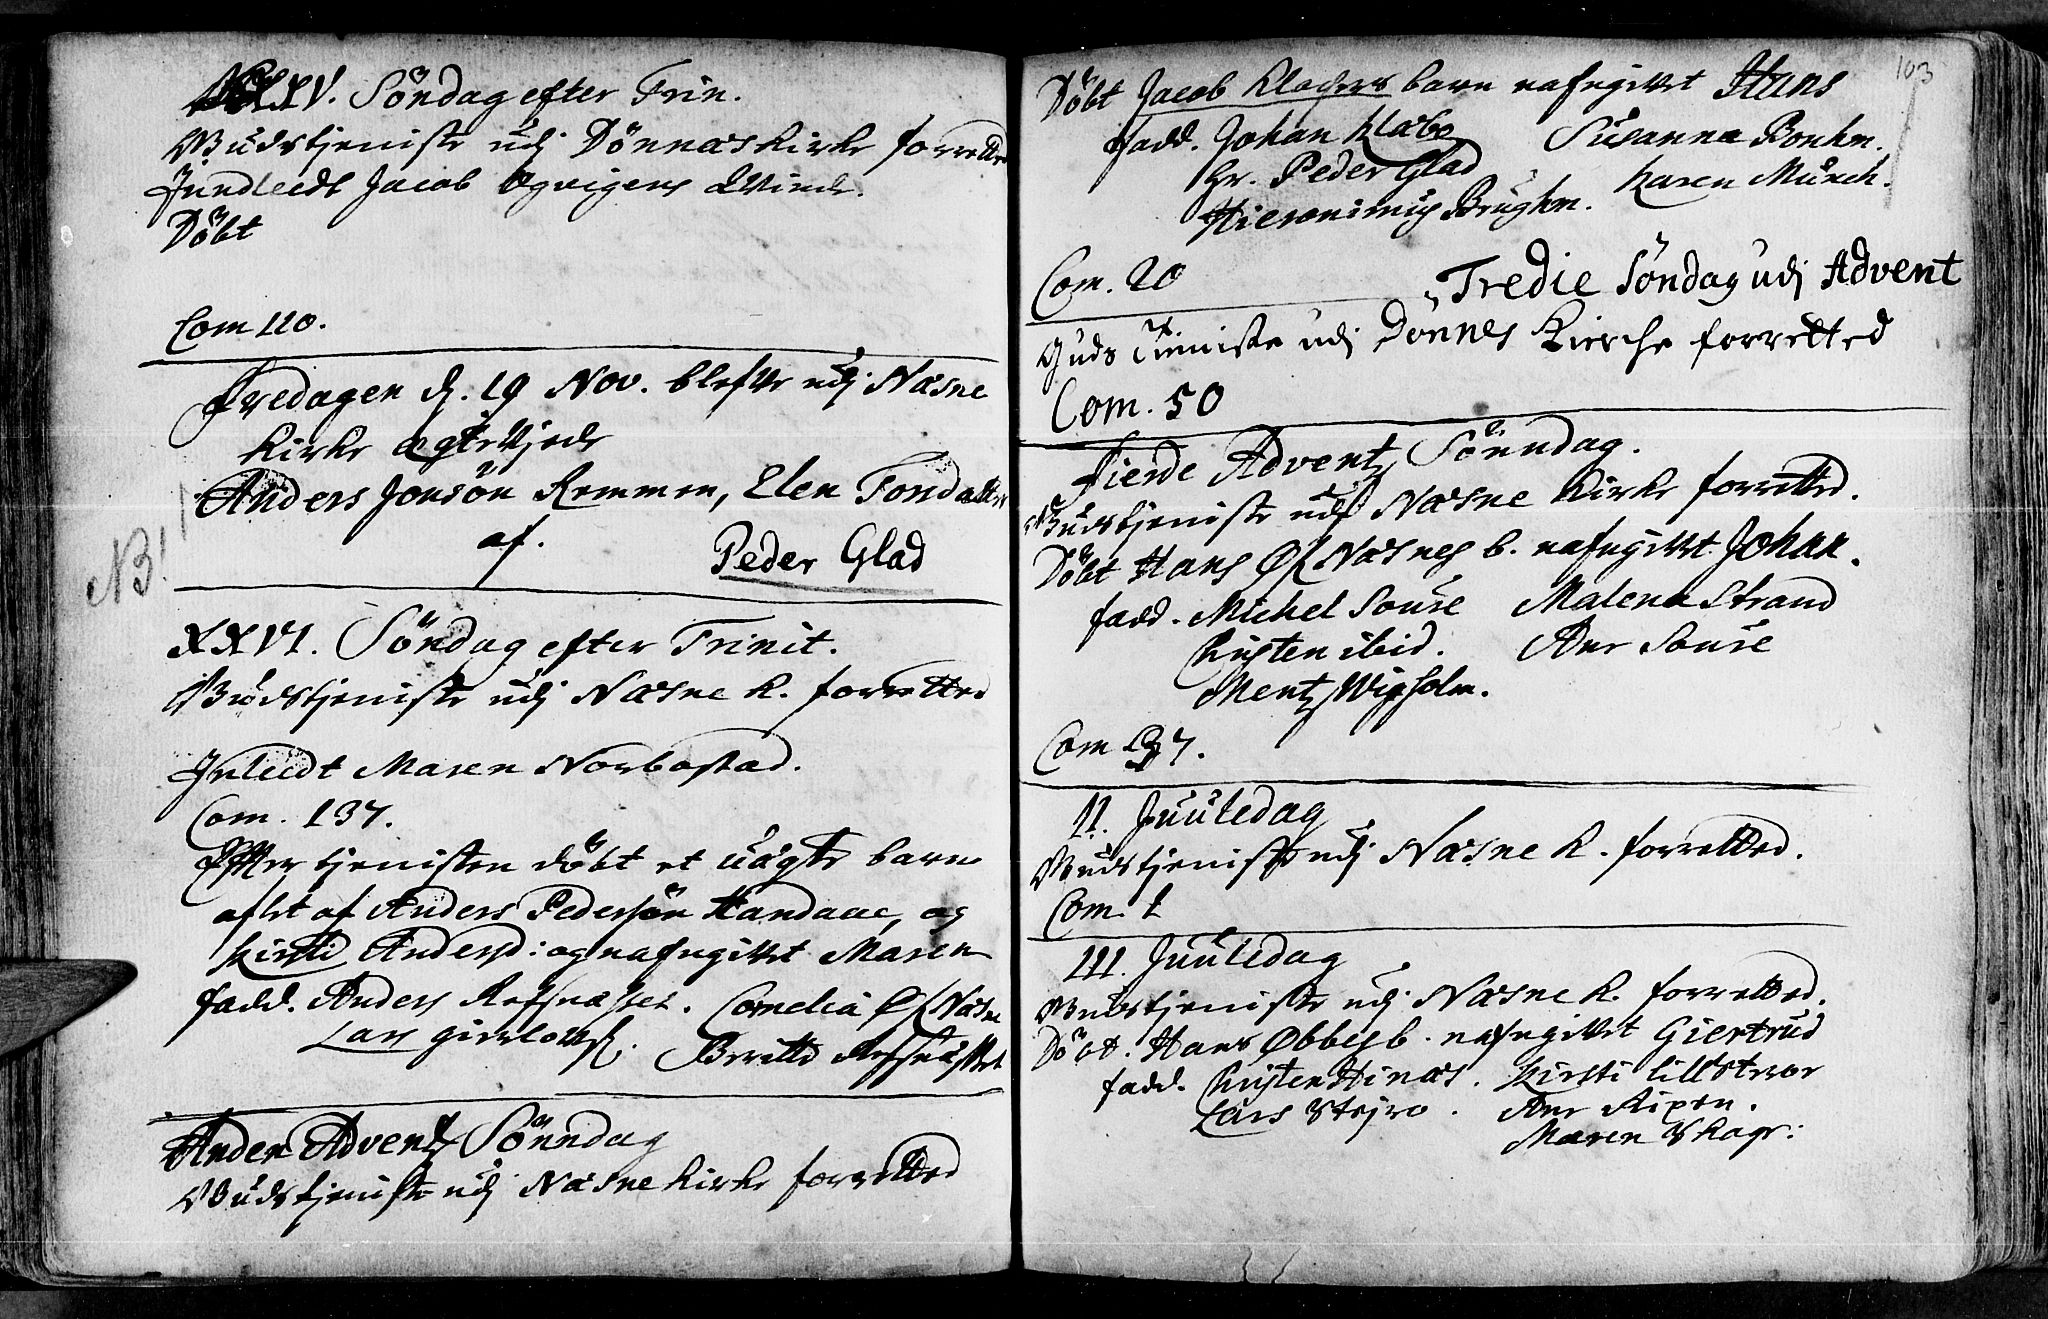 XXV. Söndag efter Trin.
Gudstjeniste udj Dönnæs Kirke forretted
Inndleedt Jacob Ægvigens Qvinde.
Döbt
Com 110.
Fredagen d. 19 Nov. blefve udj Næsne
Kirke ægteviede
Anders Jonsön Remmen, Elen Tondatter
af.
Peder Glad
NB!
XXVI. Söndag efter Trinit.
Gudstjeniste udj Næsne K. forretted
Inleedt Maren Norbostad.
Com. 137.
Efter tjenisten döbt et uægte barn
aflet af Anders Pedersön Handaae, og
Kirsti Andersd: og nafngivet Maren
fadd. Anders Refsnæsset. Cornelia Næsne
Lars
Beritte Refsnæsset
Anden Advents Sönndag
Gudstjeniste udj Næsne Kirke forretted
103
Döbt Jacob barn nafngivet Hans
fadd. Johan Klæbo Susanna Bonhm.
Hr. Peder Glad Karen Münch.
Hieronimus Brughm.
Com. 20
Tredie Söndag udj Advent
Guds Tieniste udj Dönnes Kirche forretted
Com. 50
Fierde Advents Sönndag.
Gudstjeniste udj Næsne Kirke forretted.
Döbt Hans Næsnes b. nafngivet Johan.
fadd. Michel Sousé Malena Strand
Christen ibid. Ane Sousé
Mentz Wigholm.
Com 37.
II. Juuledag
Gudstjeniste udj Næsne K. forretted.
Com. 1
III. Juuledag
Gudstjeniste udj Næsne K. forretted.
Döbt. Hans Øbbys b. nafngivet Giertrud
fadd. Christen Hinæs. Kirsti lillStrør
Lars Ane Ripen.
Maren Skagr: